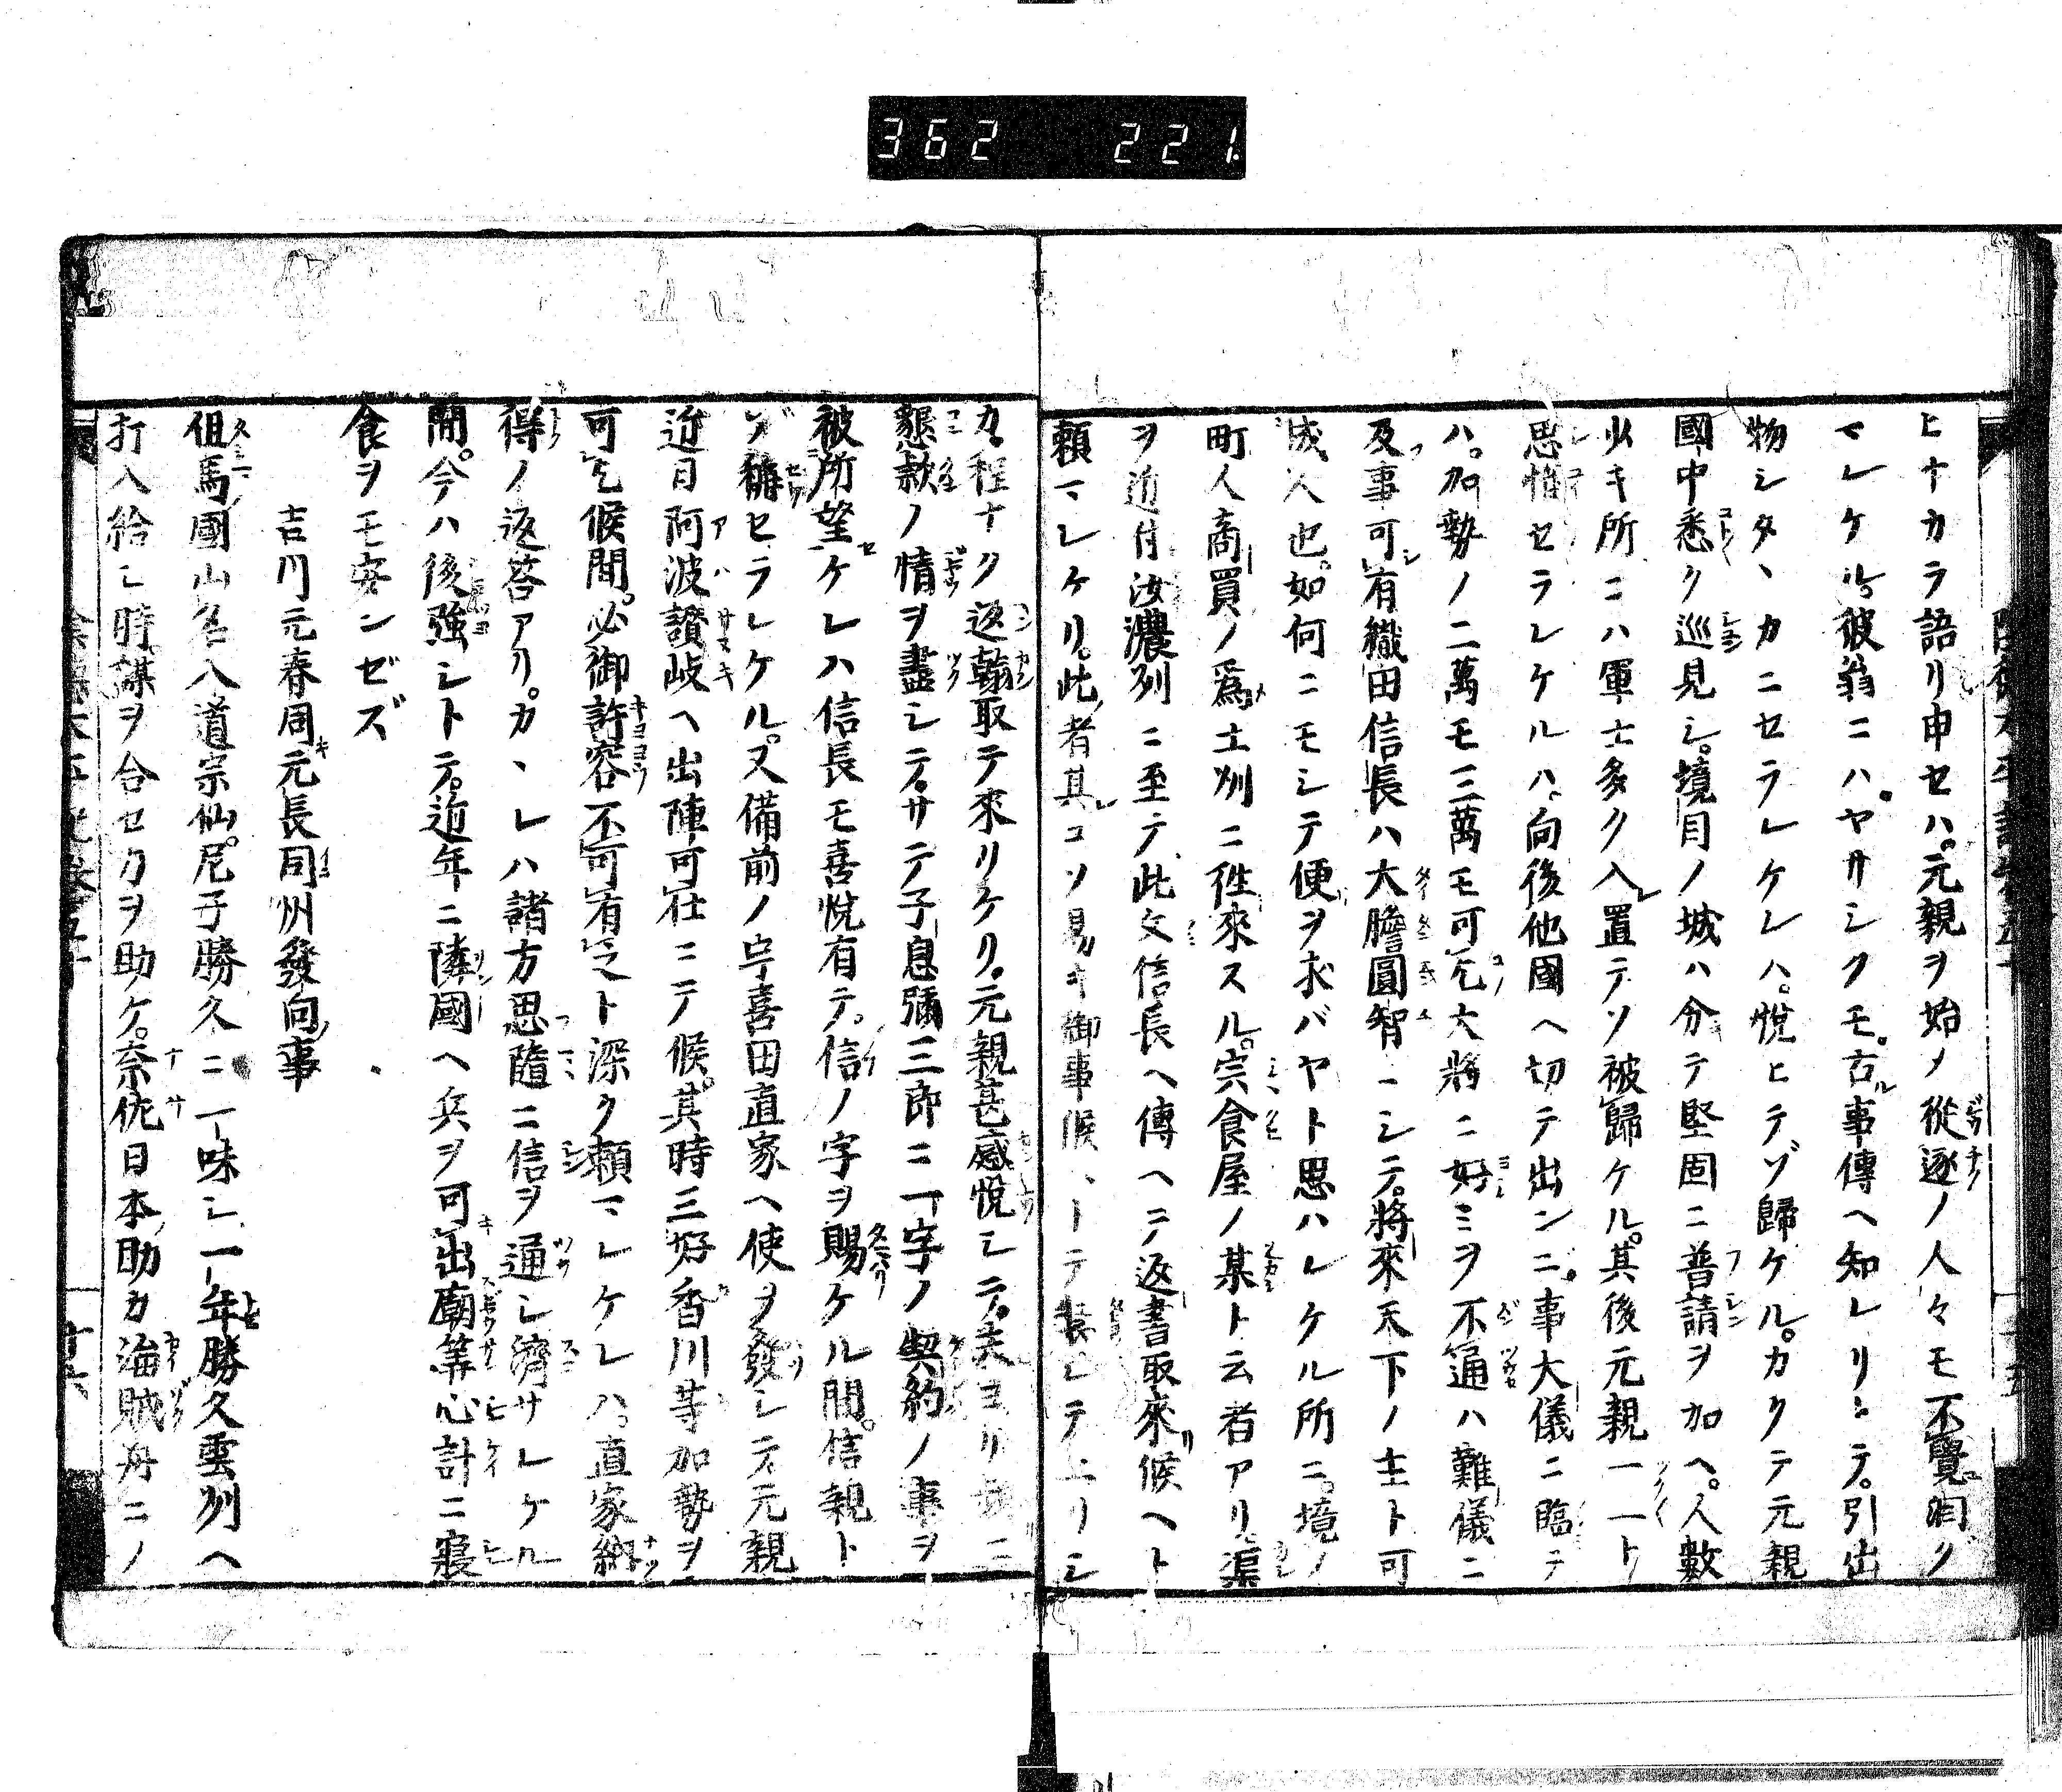 362 221
ヒナカラ語リ申セハ。元親ヲ始メ從逐ノ人々モ不覺泪ク
マレケル。彼翁ニハ。ヤサシクモ。古事傳ヘ知レリトテ。引出
物シタヽカニセラレケレハ。悦ヒテゾ歸ケル。カクテ元親
國中悉ク巡見シ。境目ノ城ハ分テ堅固ニ普請ヲ加ヘ。人數
少キ所ニハ軍士多ク入置テソ被歸ケル。其後元親一一ト
思惟セラレケルハ。向後他國ヘ切テ出ンニ。事大儀ニ臨テ
ハ。加勢ノ二萬モ三萬モ可乞大將ニ好ミヲ不通ハ難儀ニ
及事可有織田信長ハ大膽圓智ニシテ。將來天下ノ主ト可
成人也。如何ニモシテ便ヲ求バヤト思ハレケル所ニ。境ノ
町人商買ノ爲土州ニ徃來スル。宍食屋ノ某ト云者アリ。渠
ヲ近付汝濃列ニ至テ此文信長ヘ傳ヘテ返書取來候ヘト
頼マレケリ。此者其コソ易キ御事候ヽトテ テ上リシ
カ。程ナク返翰取テ來リケリ。元親甚感悦シテ。夫ヨリ ニ
懇款ノ情ヲ盡シテ。サテ子息彌三郎ニ一字ノ契約ノ事ヲ
被所望ケレハ信長モ喜悦有テ。信ノ字ヲ賜ケル間。信親ト
ゾ稱セラレケル。又備前ノ宇喜田直家ヘ使ヲ發シテ。元親
近日阿波讃岐ヘ出陣可仕ニテ候。其時三好香川等加勢ヲ
可乞候間。必御許容不可有之ト深ク頼マレケレハ。直家納
得ノ返答アリ。カヽレハ諸方思隨ニ信ヲ通シ濟サレケル
間。今ハ後強シトテ。近年ニ隣國ヘ兵ヲ可出廟筭心計ニ寢
食ヲモ安ンゼズ
吉川元春同元長同州發向事
但馬國山名入道宗仙。尼子勝久ニ一味シ。一年勝久雲州ヘ
打入給シ時。謀ヲ合セ力ヲ助ケ。奈佐日本助カ海賊舟ニノ